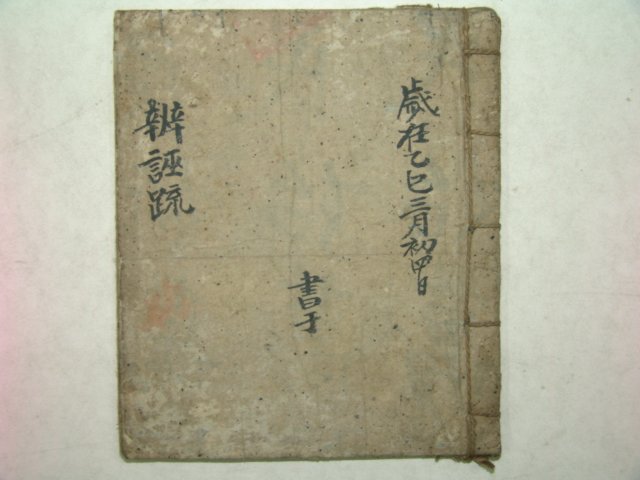 歲在乙巳三月初四日
書于
辨誣疏